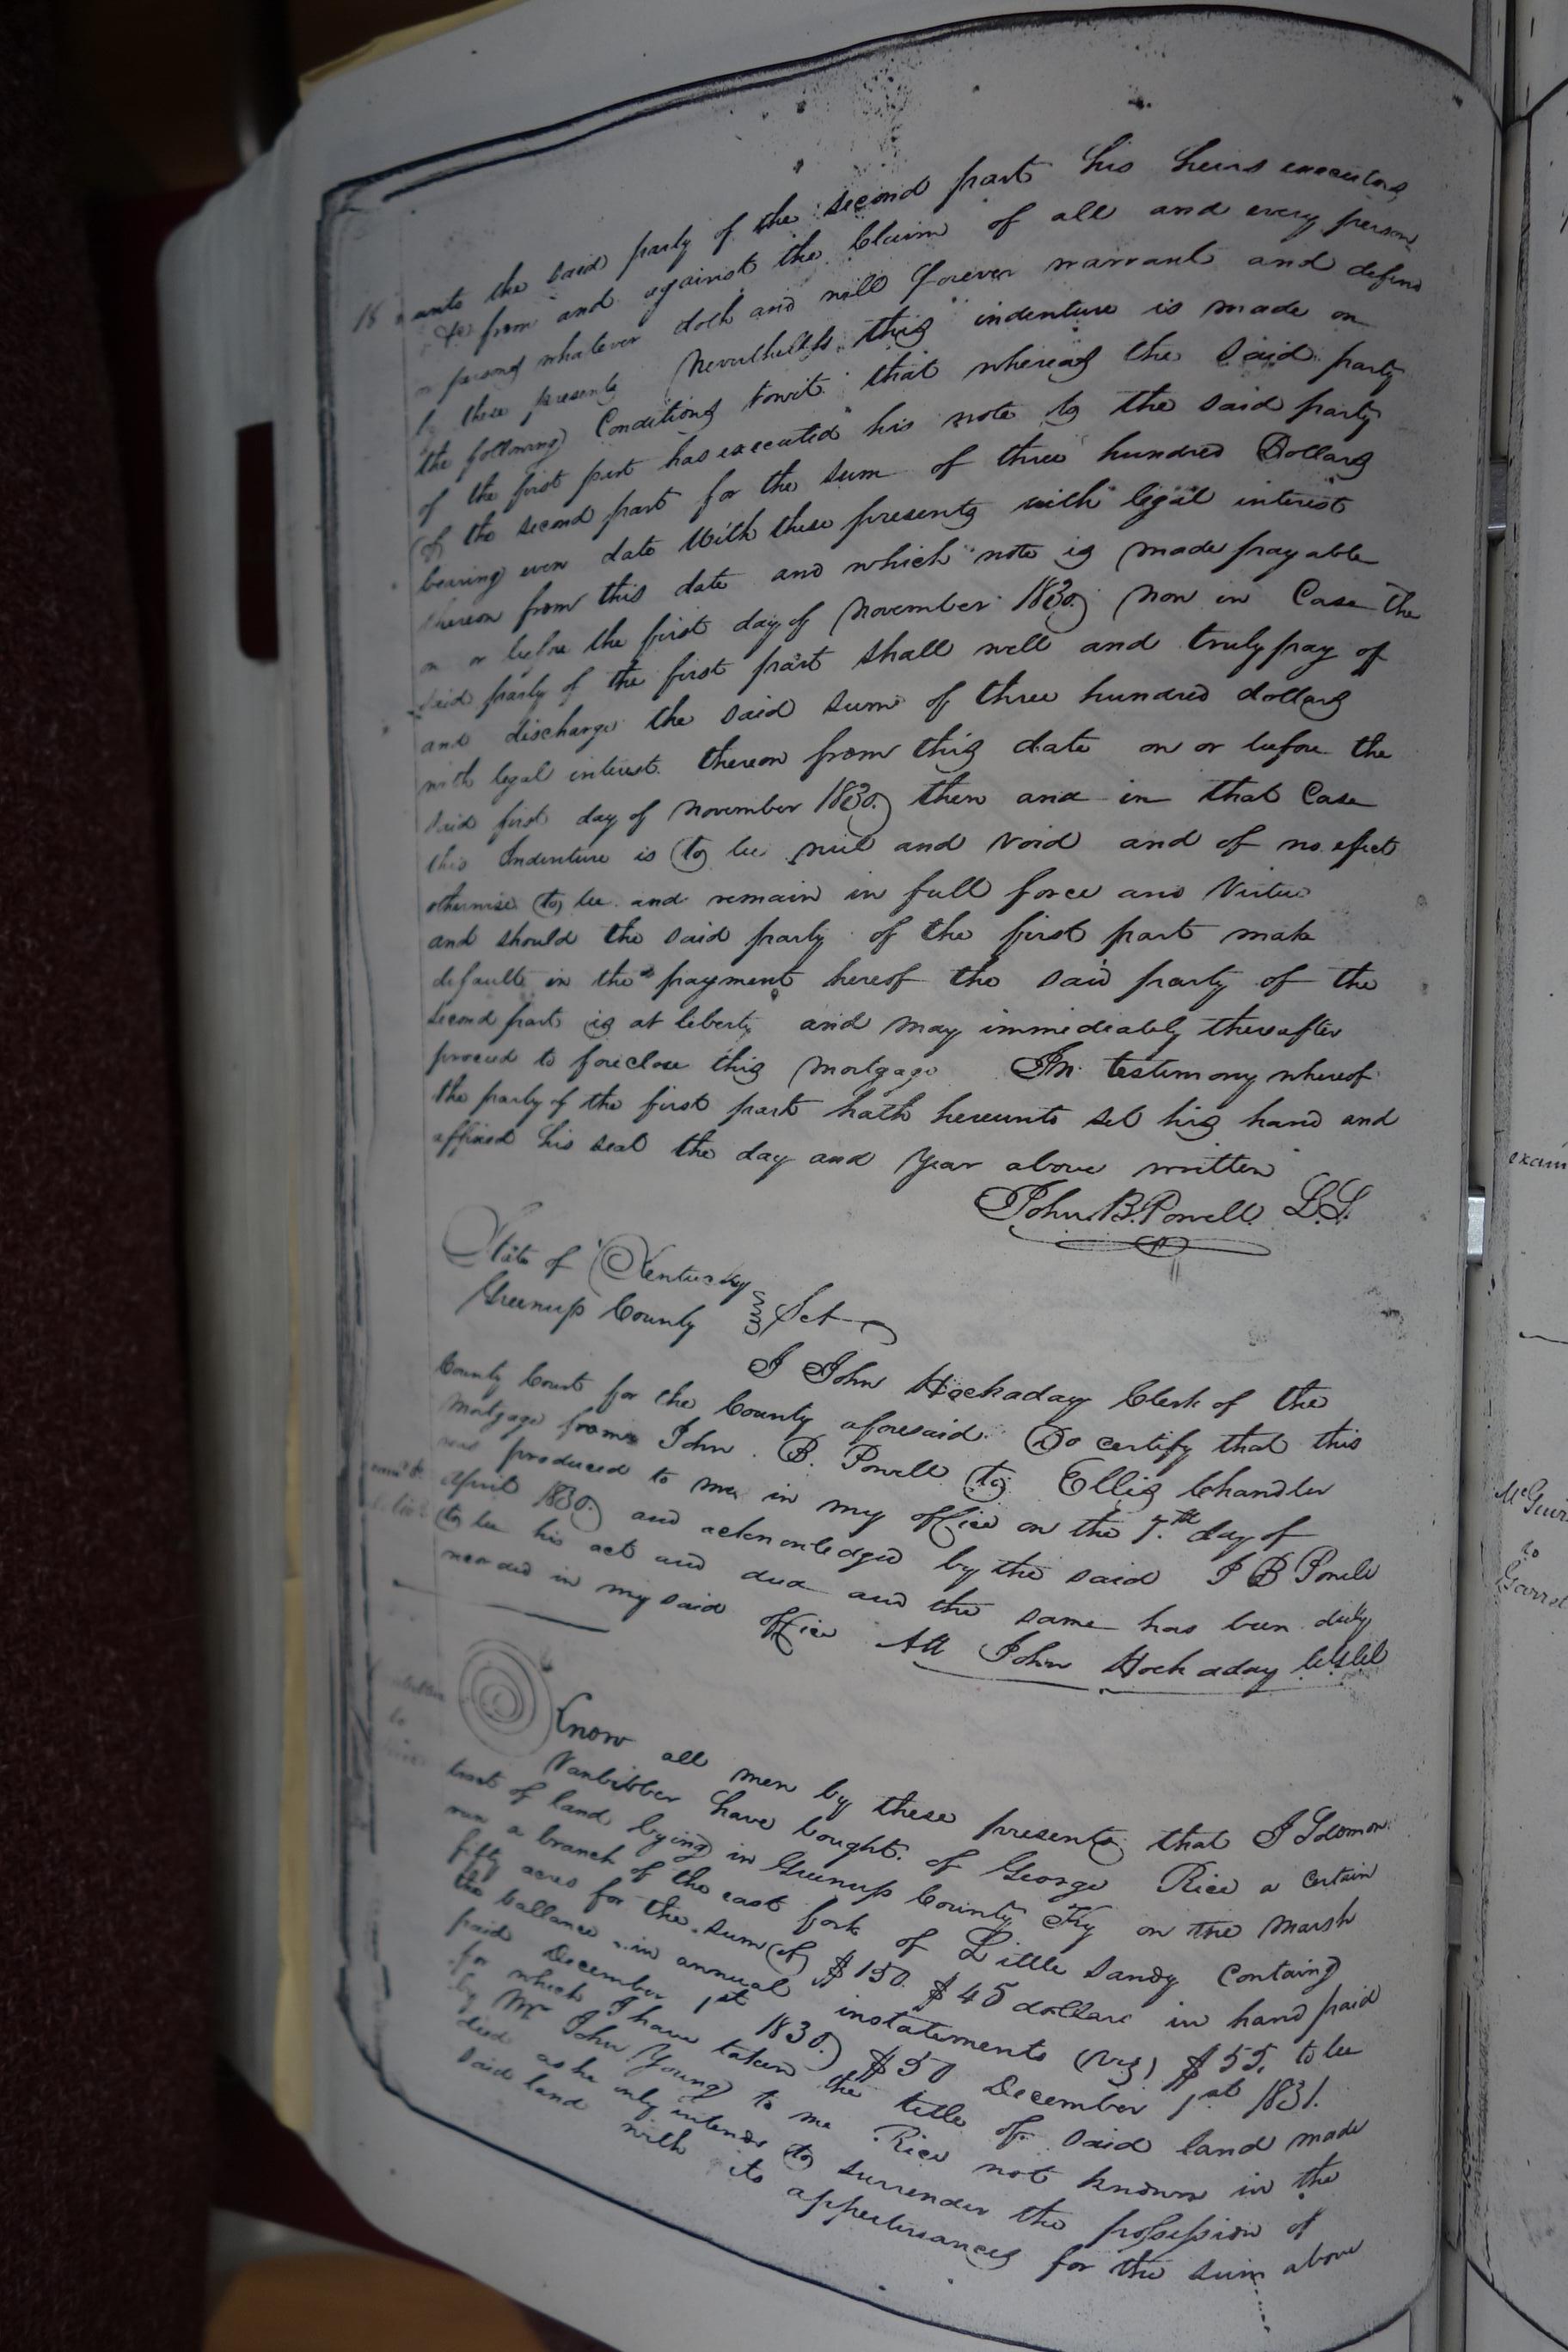 18
unto the said party of the second part his heirs executors
&c from and against the Claim of all and every person
or persons whatever doth and will forever warrant and defend
by these presents Nevertheless this indenture is made on
the following Conditions towit that whereas the said party
of the first part has executed his note to the said party
of the second part for the sum of three hundred Dollars
bearing even date With these presents with legal interest
thereon from this date and which note is made payable
on or before the first day of November 1830 Now in Case The
said party of the first part shall well and truly pay of
and discharge the said sum of three hundred dollars
with legal interest thereon from this date on or before the
said first day of November 1830 then and in that Case
this Indenture is to be null and void and of no efect
otherwise to be and remain in full force and Virtue
and should the said party of the first part make
default in the payment hereof the said party of the
second part is at liberty and may immediately thereafter
proceed to foreclose this Mortgage In testimony whereof
the party of the first part hath hereunto set his hand and
affixed his seal the day and Year above written
John B. Powell L.S.
State of Kentucky
Greenup County Sct
I John Hockaday Clerk of the
County Court for the County aforesaid Do certify that this
Mortgage from John B. Powell to Ellis Chandler
was produced to me in my office on the 7th day of
April 1830 and acknowledged by the said J B Powell
to be his act and deed and the same has been duly
recorded in my said office Att John Hockaday
Know all men by these presents that I Solomon
Vanbibber have bought of George Rice a certain
tract of land lying in Greenup County Ky on the Marsh
run a branch of the east fork of Little Sandy Containg
fifty acres for the sum of $150. $45 dollars in hand paid
the ballance in annual instatements (viz) $55, to be
paid December 1st 1830) $50 December 1st 1831.
for which I have taken the title of said land made
by Mr John Young to me Rice not known in the
deed as he only intends to surrender the possession of
said land with its appertinances for the sum above
exam
McGuir
to
Garret